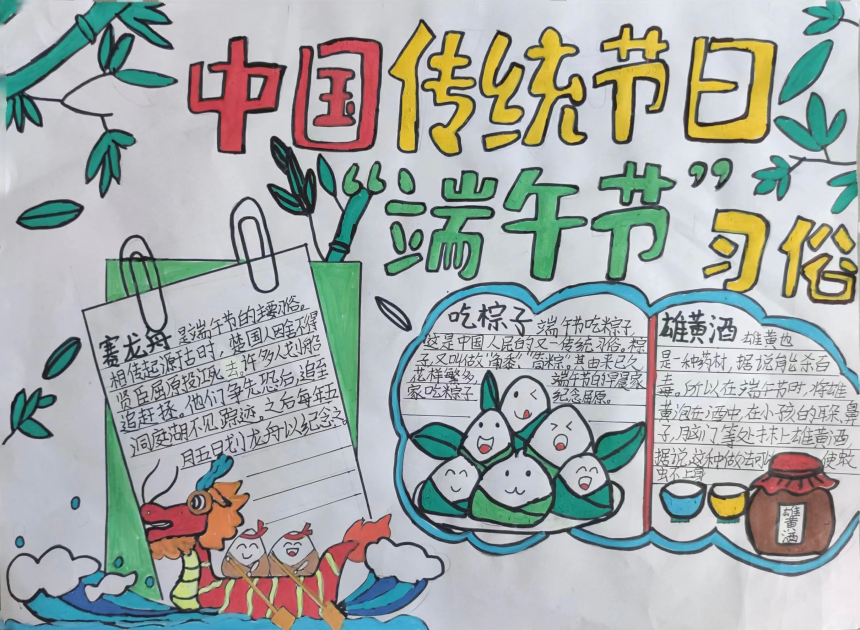 中国传统节日
“端午节”习俗
赛龙舟是端午节的主要习俗。
相传起源古时，楚国人因舍不得
贤臣屈原投江死去。许多人划船
追赶拯。他们争先恐后，追至
洞庭湖不见踪迹。之后每年五
月五日划龙舟以纪念之
吃棕子 端午节吃粽子
这是中国人民的又一传统习俗。粽
子又叫做“角黍”“筒粽”。其由来已久
花样繁多 端午节的早晨家
家吃粽子 纪念屈原。
雄黄酒 雄黄也
是一种药材，据说能杀百
毒。所以在端午节时，将雄
黄泡在酒中，在小孩的耳朵、鼻
子，脑门等处抹上雄黄酒
据说这种做法可 使蚊
虫
雄黄酒